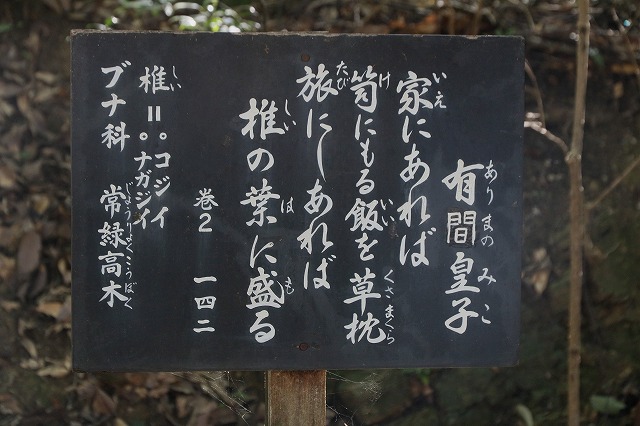 有間皇子
ありまのみこ
家にあれば
いえ
笥にもる飯を草枕
け いい くさまくら
旅にしあれば
たび
椎の葉に盛る
しい は も
巻2 一四二
椎=・コジイ
しい
・ナガジイ
ブナ科 常緑高木
じょうりょくこうぼく